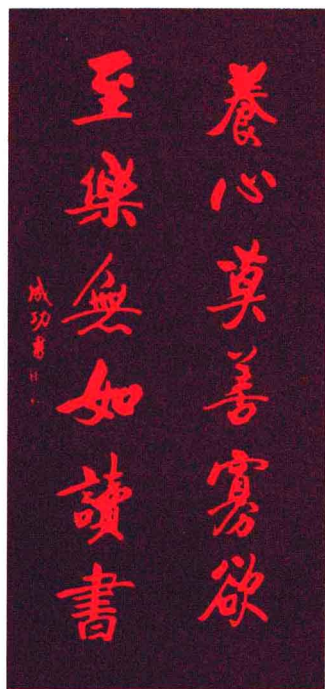 養心莫善寡欲
至樂無如讀書
成功書